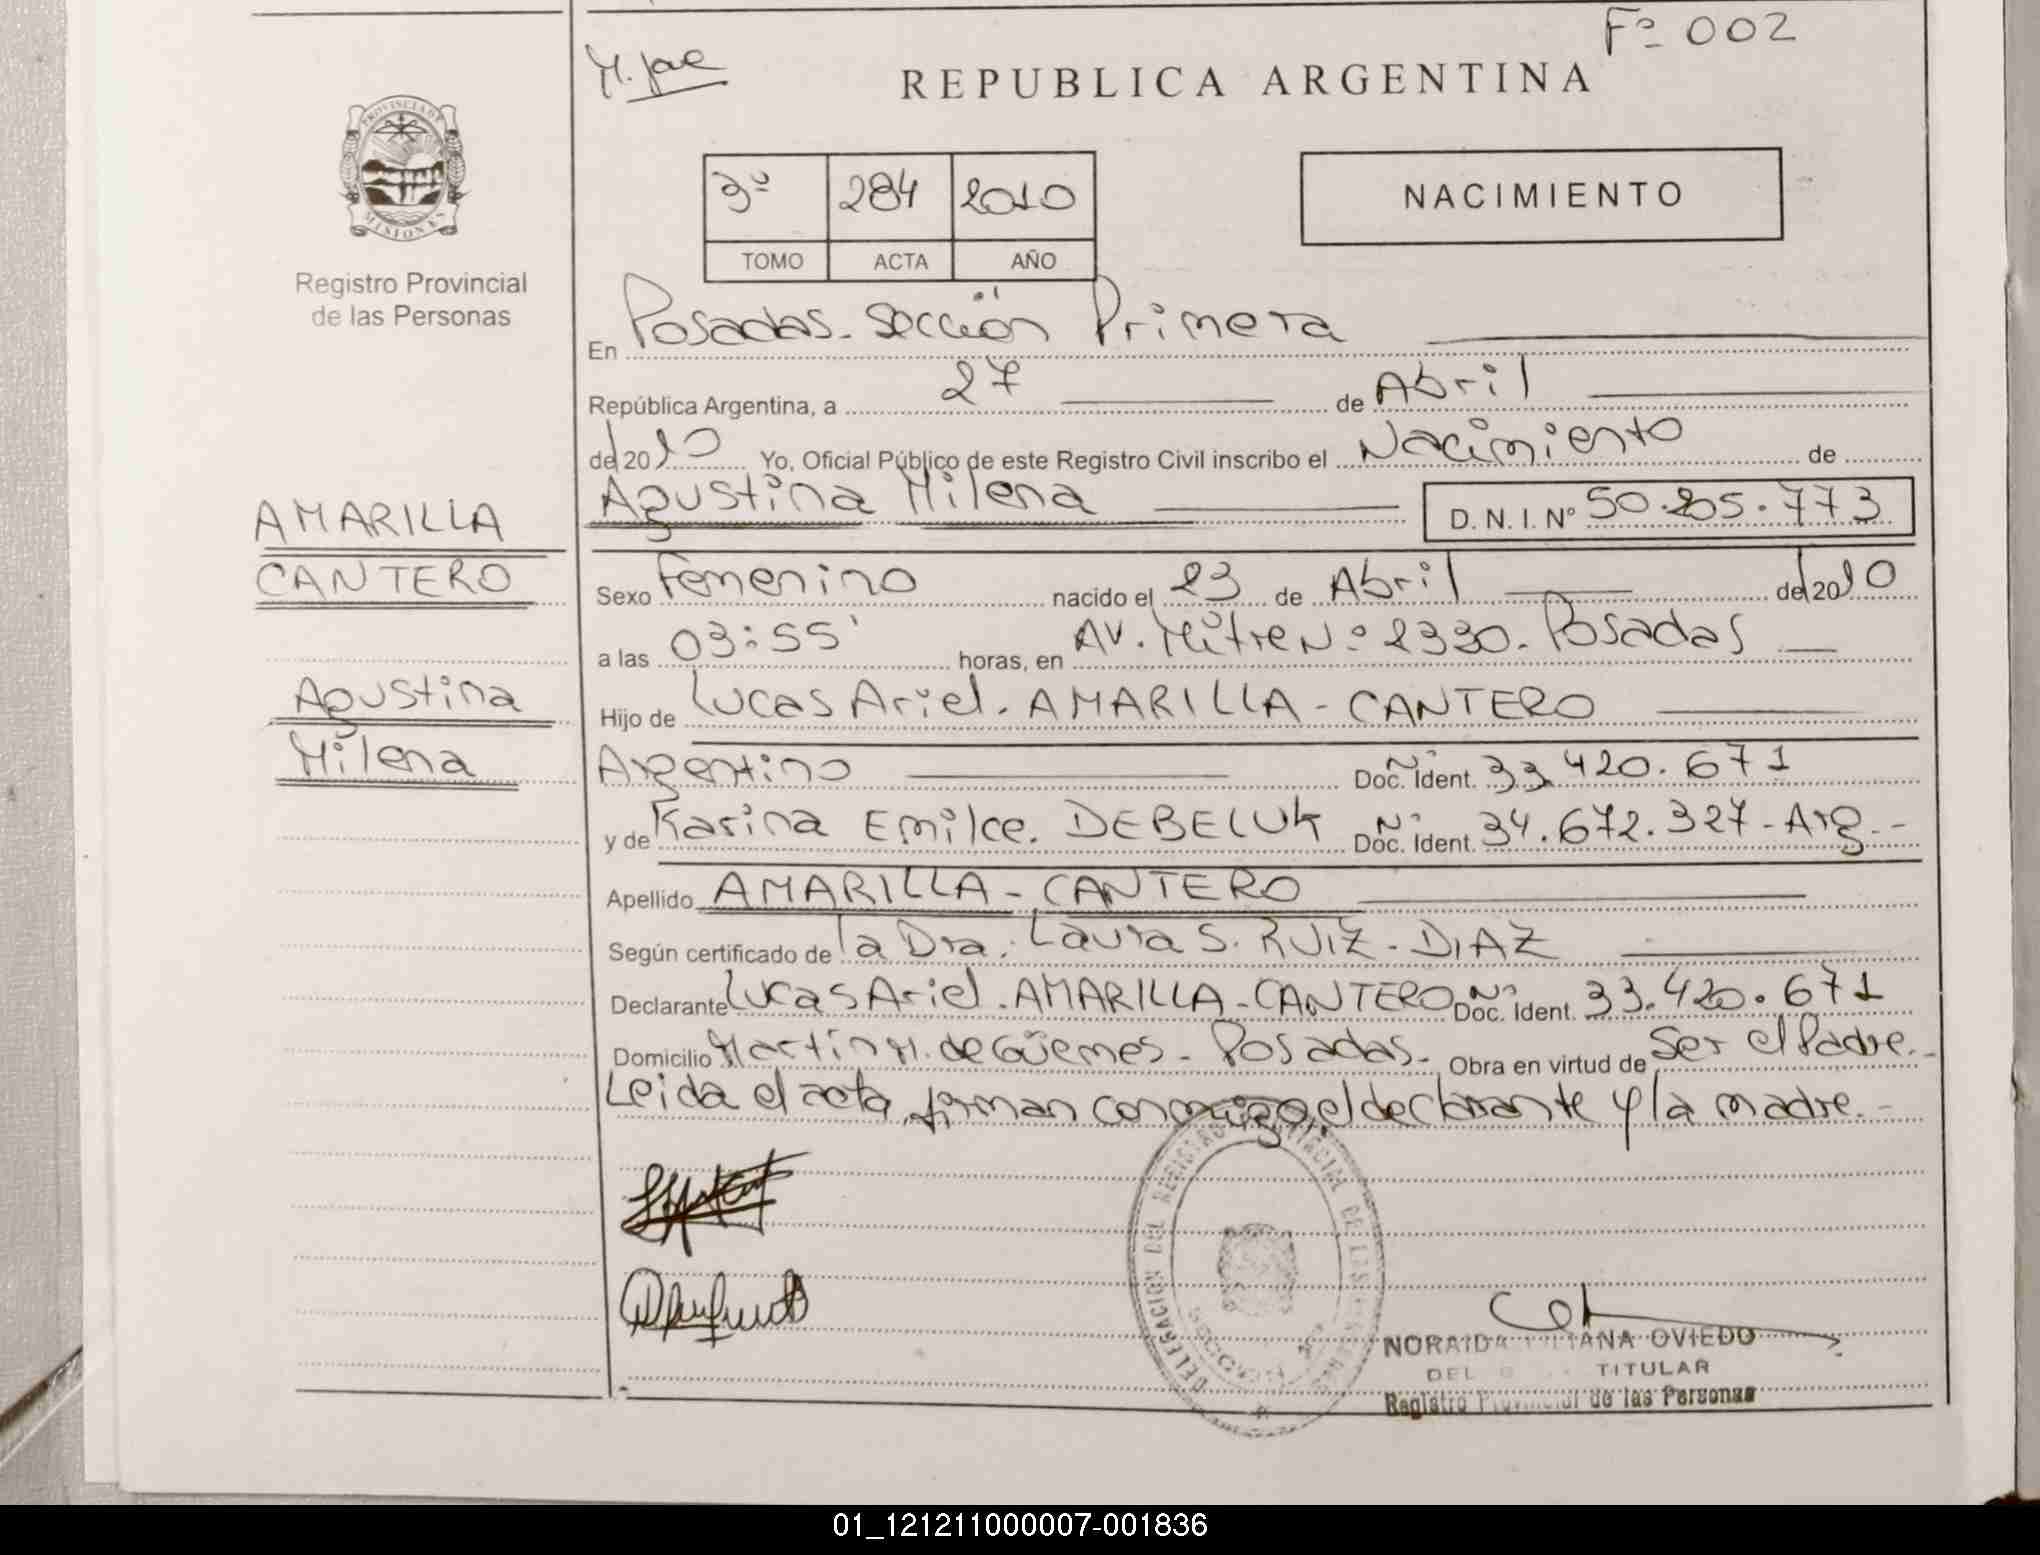 Fº 002
REPUBLICA ARGENTINA
PROVINCIA DE
MISIONES
Registro Provincial
de las Personas
3º 284 2010
TOMO ACTA AÑO
NACIMIENTO
En Posadas. Sección Primera
República Argentina, a 27 de Abril
del 2010 Yo, Oficial Público de este Registro Civil inscribo el Nacimiento de
Agustina Milena D. N. I. Nº 50.205.773
AMARILLA
CANTERO
Agustina
Milena
Sexo Femenino nacido el 23 de Abril del 2010
a las 03:55' horas, en AV. Mitre N.º 2330. Posadas
Hijo de Lucas Ariel. AMARILLA - CANTERO
Argentino Nº Doc. Ident. 33.420.671
y de Karina Emilce. DEBELUK Nº Doc. Ident. 34.672.327 - Arg.-
Apellido AMARILLA - CANTERO
Según certificado de la Dra. Laura S. RUIZ - DIAZ
Declarante Lucas Ariel. AMARILLA - CANTERO Nº Doc. Ident. 33.420.671
Domicilio Martín M. de Güemes - Posadas. Obra en virtud de Ser el Padre.-
Leida el acta, firman conmigo, el declarante y la madre.-
DELEGACION DEL REGISTRO PROVINCIAL DE LAS PERSONAS
SECCION
NORAIDA OVIEDO
TITULAR
Registro Provincial de las Personas
01_121211000007-001836